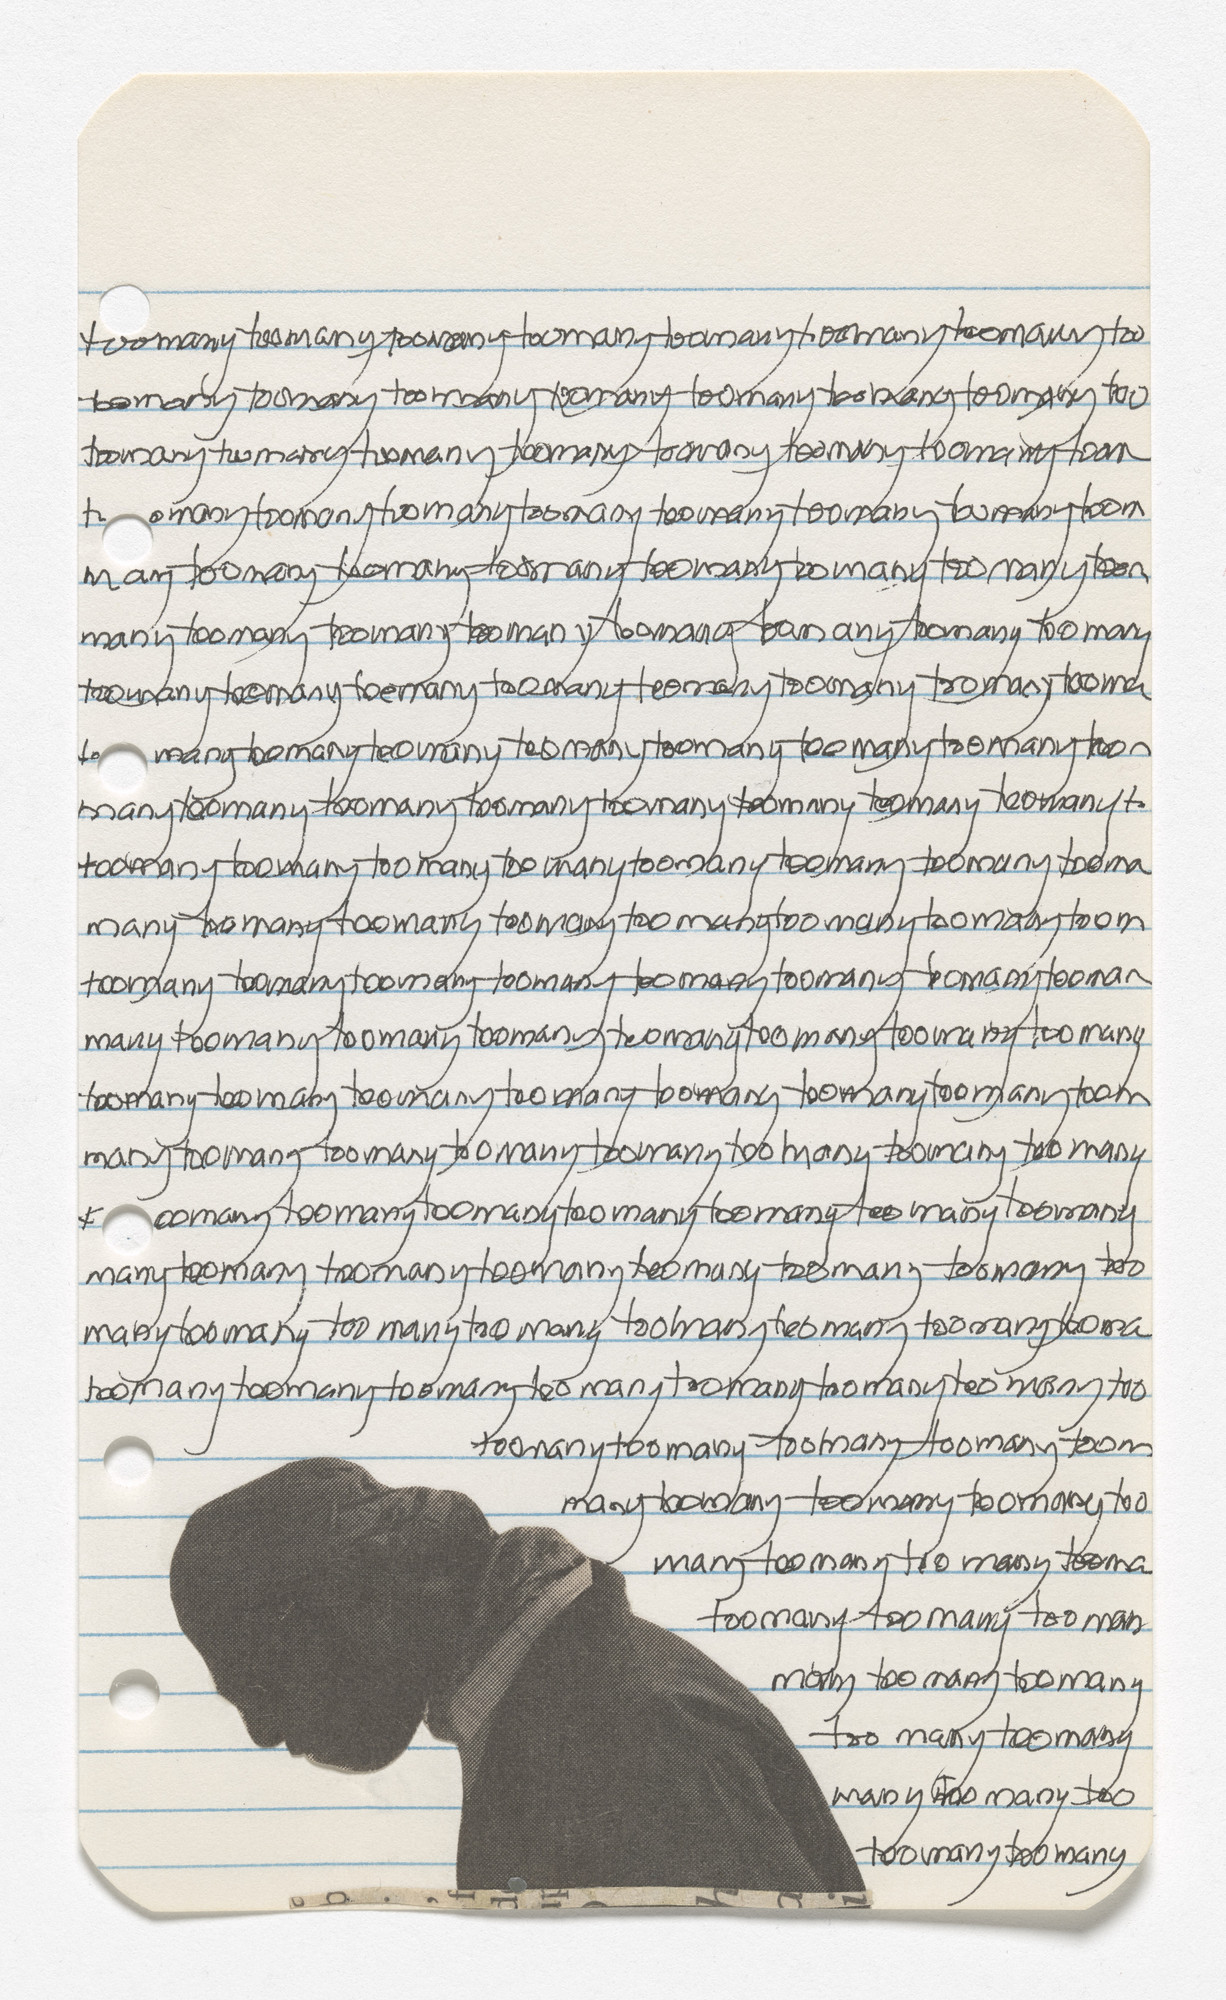 toomany toomany toomany toomany toomany toomany toomany too
toomany toomany toomany toomany toomany toomany toomany too
toomany toomany toomany toomany toomany toomany toomany toom
t omany toomany toomany toomany toomany toomany toomany toom
many toomany toomany toomany toomany toomany toomany toom
many toomany toomany toomany toomany toomany toomany toomany
toomany toomany toomany toomany toomany toomany toomany tooma
to many toomany toomany toomany toomany toomany toomany toom
many toomany toomany toomany toomany toomany toomany toomany t
toomany toomany toomany toomany toomany toomany toomany tooma
many toomany toomany toomany toomany toomany toomany toom
toomany toomany toomany toomany toomany toomany toomany tooman
many toomany toomany toomany toomany toomany toomany toomany
toomany toomany toomany toomany toomany toomany toomany toom
many toomany toomany toomany toomany toomany toomany toomany
t oomany toomany toomany toomany toomany too many toomany
many toomany toomany toomany toomany toomany toomany too
many toomany too many too many toomany toomany toomany tooma
toomany toomany toomany too many toomany toomany too many too
toomany toomany toomany toomany toom
many toomany toomany toomany too
many toomany too many tooma
toomany too many too man
many too many toomany
too many toomany
many too many too
toomany toomany